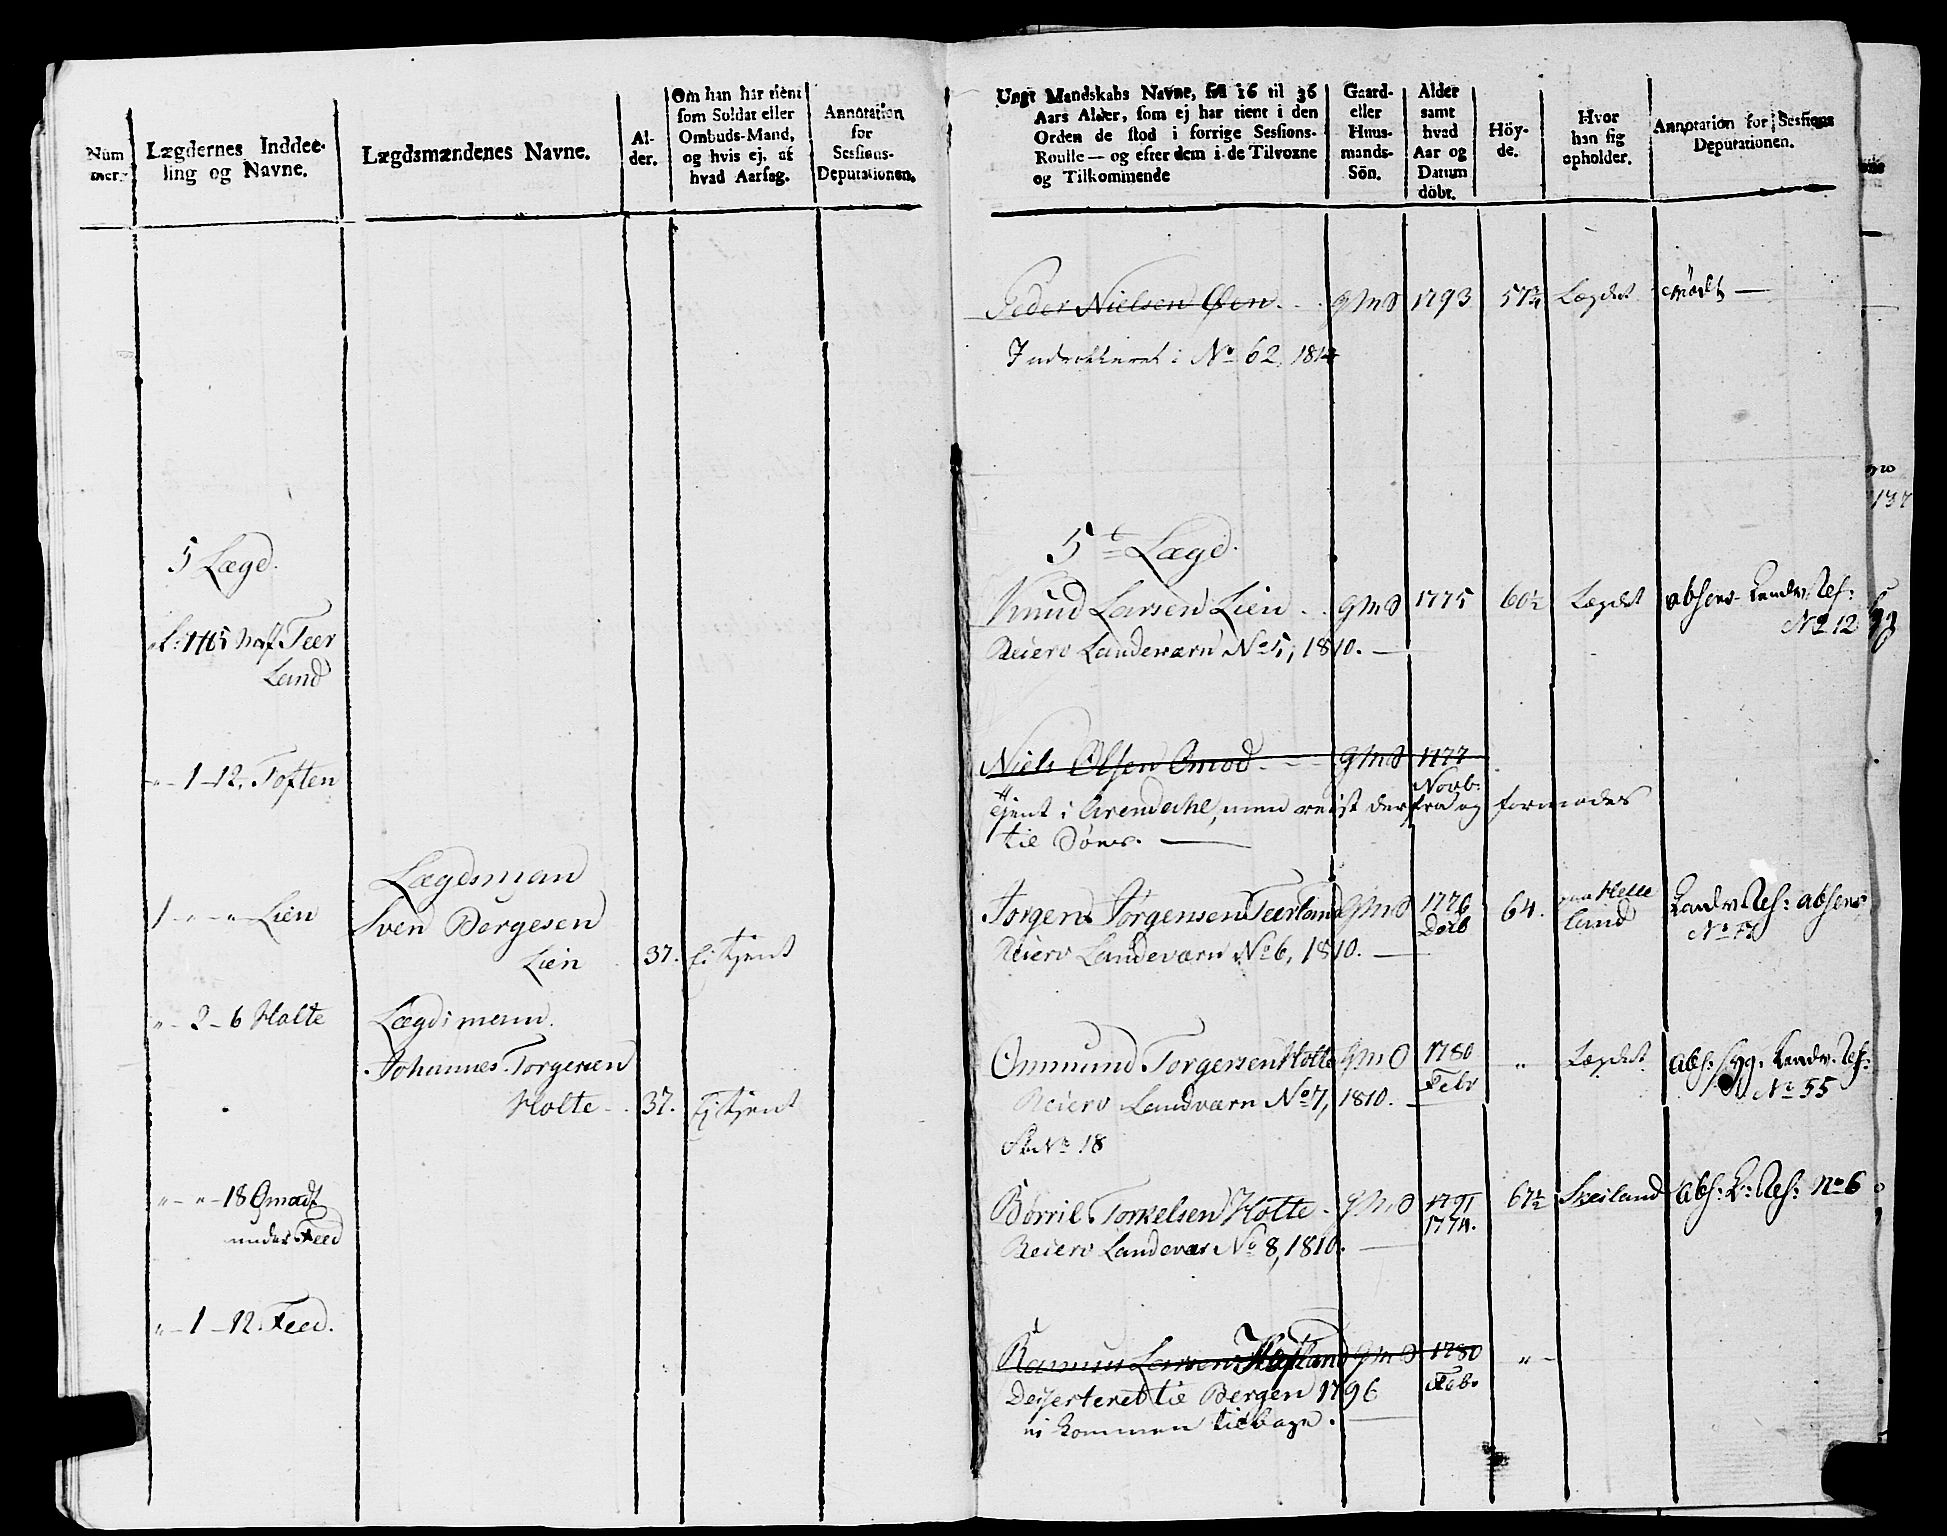 Num
mer.
Lægdernes Inddee-
ling og Navne.
Lægdsmændenes Navne.
Al-
der.
Om han har tient
som Soldat eller
Ombuds-Mand,
og hvis ej, af
hvad Aarsag.
Annotation
for
Sessions-
Deputationen.
5 Lægd.
Teer
Land
" - 1 - 12. Toften
Lægdsman
1 - " - " - Lien
Sven Børgesen
Lien 37. Ei tjent
" - 2 - 6 Holte
Lægdsmann.
Johannes Torgersen
Holte - 37. Ej tjent
" - " - 18 Qmadt
under Feed
" - 1 - 12. Feed.
Ungt Mandskabs Navne, fra 16 til 36
Aars Alder, som ej har tient i den
Orden de stod i forrige Sessions-
Roulle — og efter dem i de Tilvoxne
og Tilkommende
Gaard-
eller
Huus-
mands-
Sön.
Alder
samt
hvad
Aar og
Datum
döbt.
Höy-
de.
Hvor
han sig
opholder.
Annotation for Sessions
Deputationen.
Peder Nielsen Øen. - gmd 1793 57¾ Lægdet mödt —
Indrolleret i No 62, 1812
5te Lægd.
Knud Larsen Lien - gmd 1775 60½ Lægdet absens Landv: Res:
No 12
Reierv Landeværn No 5, 1810. —
Niels Olsen Omod - gmd 1777
Novb:
tjent i Arendahl, men reist derfra og formodes
til Søes. —
Jorgen Jørgensen Teerland gmd 1776 64. paa Helle Landv: Res: absens
Decb land
Reierv Landeværn No 6, 1810. —
Onmund Torgersen Holte gmd 1780 " Lægdet abs: syg. Landv: Res:
Febr No 55
Reierv Landværn No 7, 1810. —
No 18
Børril Torkelsen Holte - gmd 1771 67½ Skeiland abs: L: Res: No 6
1774.
Reierv Landevær No 8, 1810. —
Rasmus Larsen gmd 1780 " -
Febr
Desserteret til Bergen 1796
ei kommen tilbage. —